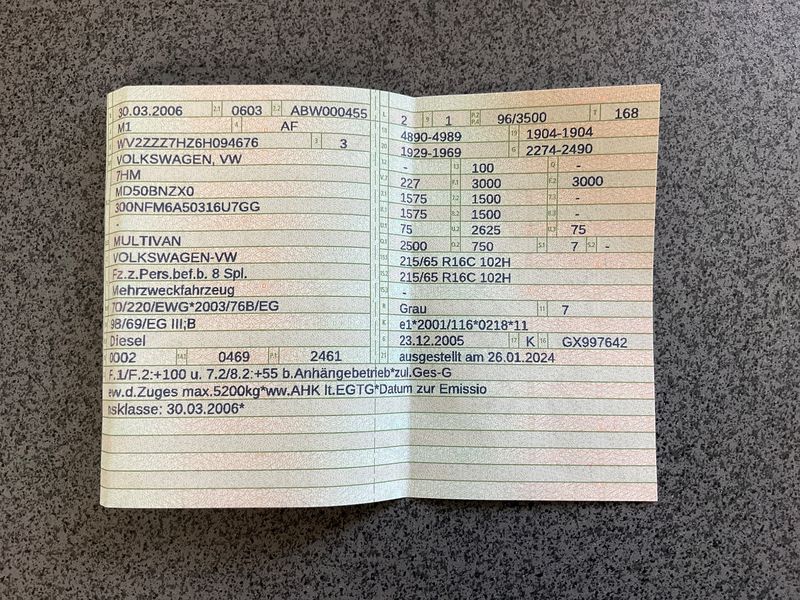 30.03.2006 2.1 0603 2.2 ABW000455
M1 4 AF
WV2ZZZ7HZ6H094676 3 3
VOLKSWAGEN, VW
7HM
MD50BNZX0
300NFM6A50316U7GG
-
MULTIVAN
VOLKSWAGEN-VW
Fz.z.Pers.bef.b. 8 Spl.
Mehrzweckfahrzeug
70/220/EWG*2003/76B/EG
98/69/EG III;B
Diesel
0002 14.1 0469 P.1 2461
F.1/F.2:+100 u. 7.2/8.2:+55 b.Anhängebetrieb*zul.Ges-G
ew.d.Zuges max.5200kg*ww.AHK lt.EGTG*Datum zur Emissio
nsklasse: 30.03.2006*
L 2 9 1 P.2 P.4 96/3500 T 168
18 4890-4989 19 1904-1904
20 1929-1969 G 2274-2490
12 - 13 100 Q -
V.7 227 F.1 3000 F.2 3000
7.1 1575 7.2 1500 7.3 -
8.1 1575 8.2 1500 8.3 -
U.1 75 U.2 2625 U.3 75
O.1 2500 O.2 750 S.1 7 S.2 -
15.1 215/65 R16C 102H
15.2 215/65 R16C 102H
15.3 -
R Grau 11 7
K e1*2001/116*0218*11
6 23.12.2005 17 K 16 GX997642
21 ausgestellt am 26.01.2024